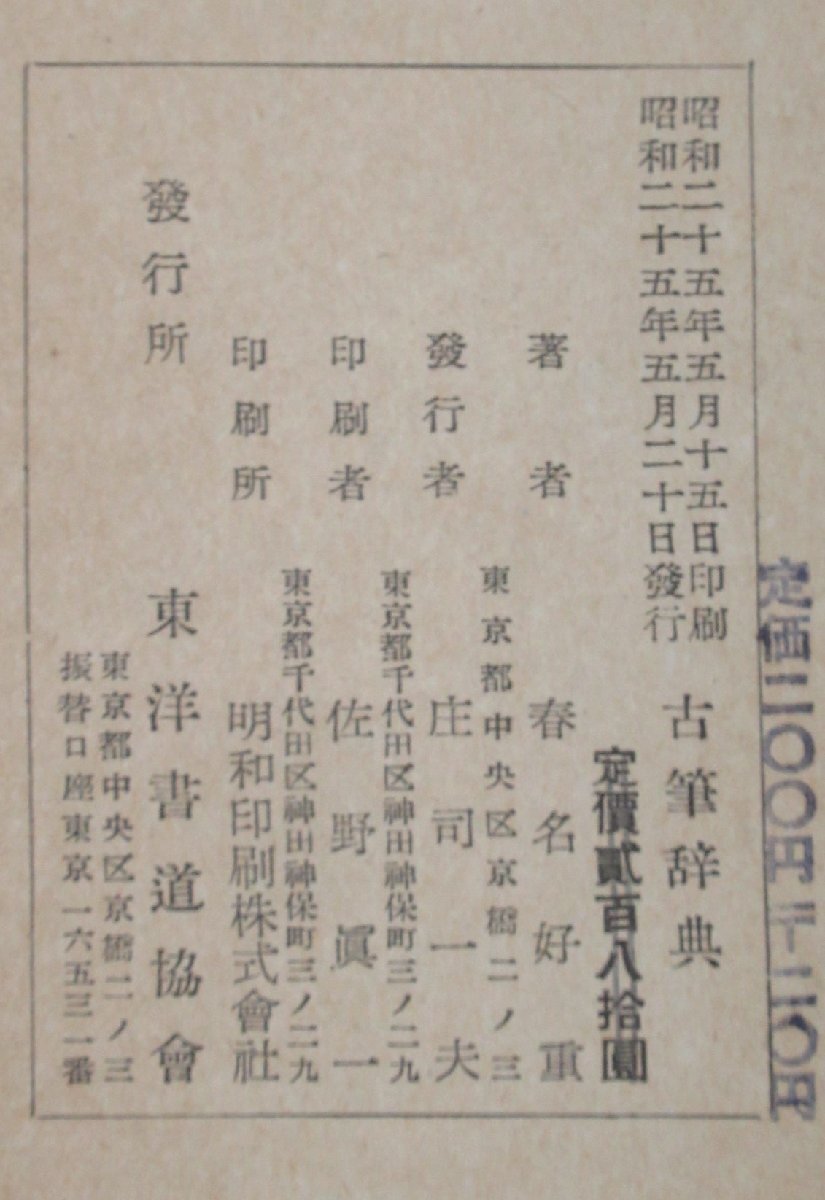 定価二〇〇円〒二〇円
昭和二十五年五月十五日印刷
昭和二十五年五月二十日發行
古筆辞典
定價貳百八拾圓
著者 春名好重
東京都中央区京橋二ノ三
發行者 庄司一夫
東京都千代田区神田神保町三ノ二九
印刷者 佐野眞一
東京都千代田区神田神保町三ノ二九
印刷所 明和印刷株式會社
發行所 東洋書道協會
東京都中央区京橋二ノ三
振替口座東京一六五三一番